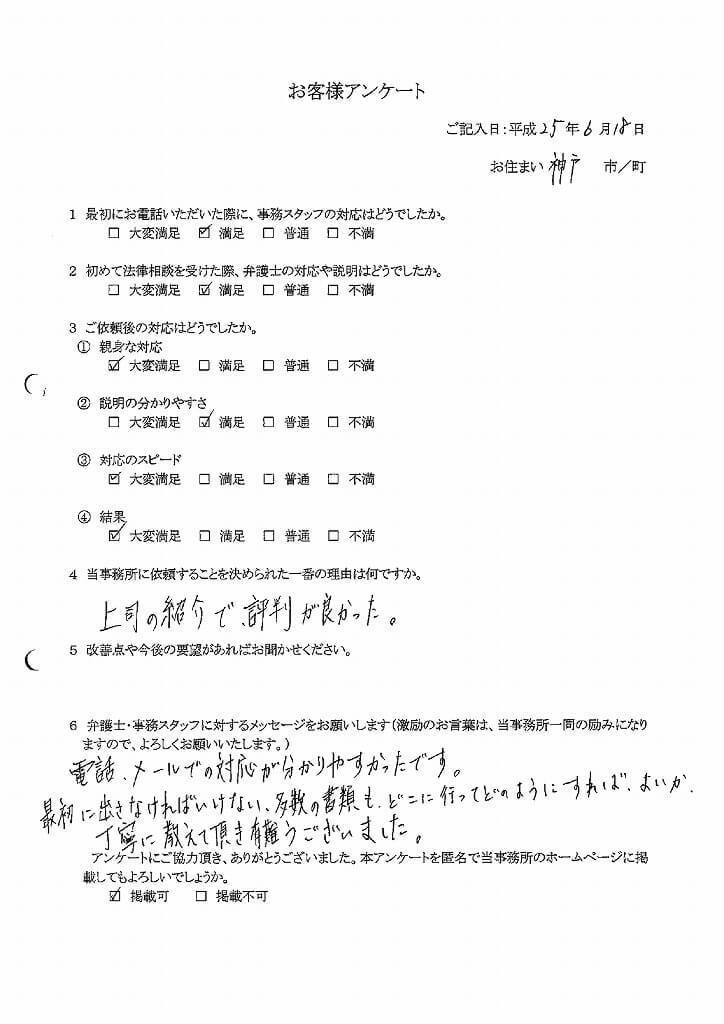 お客様アンケート
ご記入日:平成25年6月18日
お住まい 神戸 市/町
1 最初にお電話いただいた際に、事務スタッフの対応はどうでしたか。
□ 大変満足 ☑ 満足 □ 普通 □ 不満
2 初めて法律相談を受けた際、弁護士の対応や説明はどうでしたか。
□ 大変満足 ☑ 満足 □ 普通 □ 不満
3 ご依頼後の対応はどうでしたか。
① 親身な対応
☑ 大変満足 □ 満足 □ 普通 □ 不満
② 説明の分かりやすさ
□ 大変満足 ☑ 満足 □ 普通 □ 不満
③ 対応のスピード
☑ 大変満足 □ 満足 □ 普通 □ 不満
④ 結果
☑ 大変満足 □ 満足 □ 普通 □ 不満
4 当事務所に依頼することを決められた一番の理由は何ですか。
上司の紹介で、評判が良かった。
5 改善点や今後の要望があればお聞かせください。
6 弁護士・事務スタッフに対するメッセージをお願いします(激励のお言葉は、当事務所一同の励みになり
ますので、よろしくお願いいたします。)
電話、メールでの対応が分かりやすかったです。
最初に出さなければいけない、多数の書類も、どこに行ってどのようにすれば、よいか、
丁寧に教えて頂き有難うございました。
アンケートにご協力頂き、ありがとうございました。本アンケートを匿名で当事務所のホームページに掲
載してもよろしいでしょうか。
☑ 掲載可 □ 掲載不可